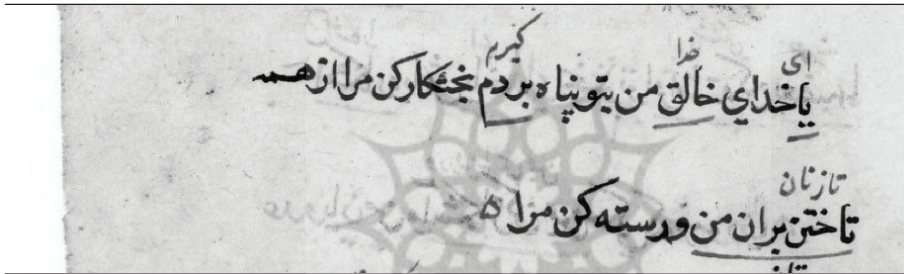 ای خدا کیرم
یا خدای خالق من بتو پناه بردم کن مرا از همه
تازنان
تاختن بران من و رسته کن مرا